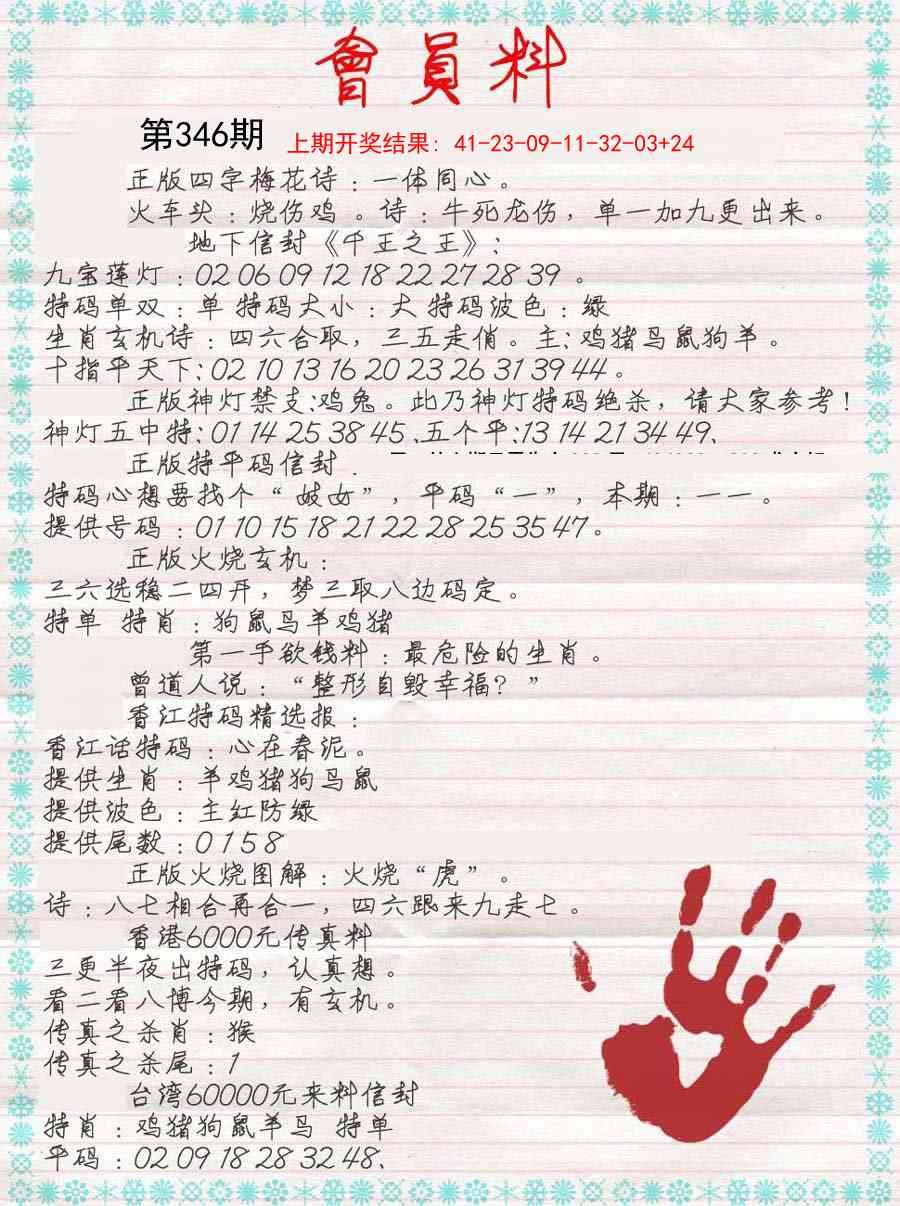 會員料
第346期 上期开奖结果: 41-23-09-11-32-03+24
正版四字梅花诗:一体同心。
火车头:烧伤鸡。诗:牛死龙伤,单一加九更出来。
地下信封《千王之王》:
九宝莲灯:02 06 09 12 18 22 27 28 39 。
特码单双:单 特码大小:大 特码波色:绿
生肖玄机诗:四六合取,三五走俏。主:鸡猪马鼠狗羊。
十指平天下:02 10 13 16 20 23 26 31 39 44 。
正版神灯禁支:鸡兔。此乃神灯特码绝杀,请大家参考!
神灯五中特:01 14 25 38 45 、五个平:13 14 21 34 49、
正版特平码信封 .
特码心想要找个“妓女”,平码“一”,本期:一一。
提供号码:01 10 15 18 21 22 28 25 35 47。
正版火烧玄机:
三六选稳二四开,梦三取八边码定。
特单 特肖:狗鼠马羊鸡猪
第一手欲钱料:最危险的生肖。
曾道人说:“整形自毁幸福?”
香江特码精选报:
香江话特码:心在春泥。
提供生肖:羊鸡猪狗马鼠
提供波色:主红防绿
提供尾数:0 1 5 8
正版火烧图解:火烧“虎”。
诗:八七相合再合一,四六跟来九走七。
香港6000元传真料
三更半夜出特码,认真想。
看二看八博今期,有玄机。
传真之杀肖:猴
传真之杀尾:1
台湾60000元来料信封
特肖:鸡猪狗鼠羊马 特单
平码:02 09 18 28 32 48、